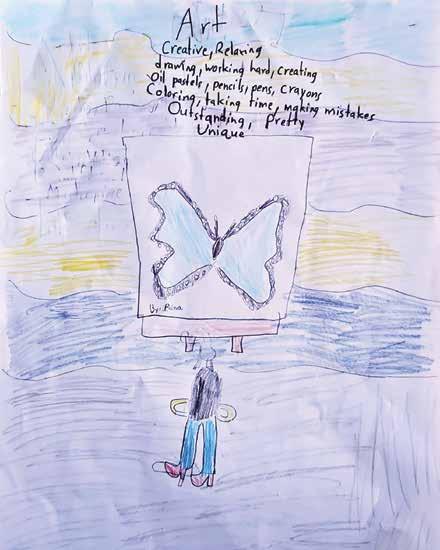 Art
Creative, Relaxing
drawing, working hard, creating
Oil pastels, pencils, pens, crayons
Coloring, taking time, making mistakes
Outstanding, Pretty
Unique
By: Rena